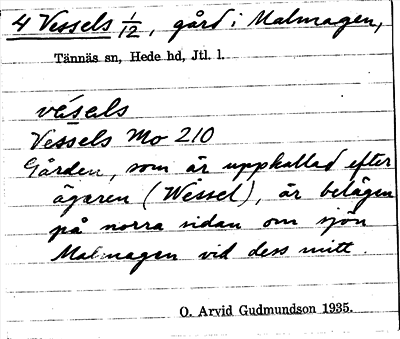 4 Vessels 1/12, gård i Malmagen,
Tännäs sn, Hede hd, Jtl. l.
vésels
Vessels Mo 210
Gården, som är uppkallad efter
ägaren (Wessel), är belägen
på norra sidan om sjön
Malmagen vid dess mitt.
O. Arvid Gudmundson 1935.